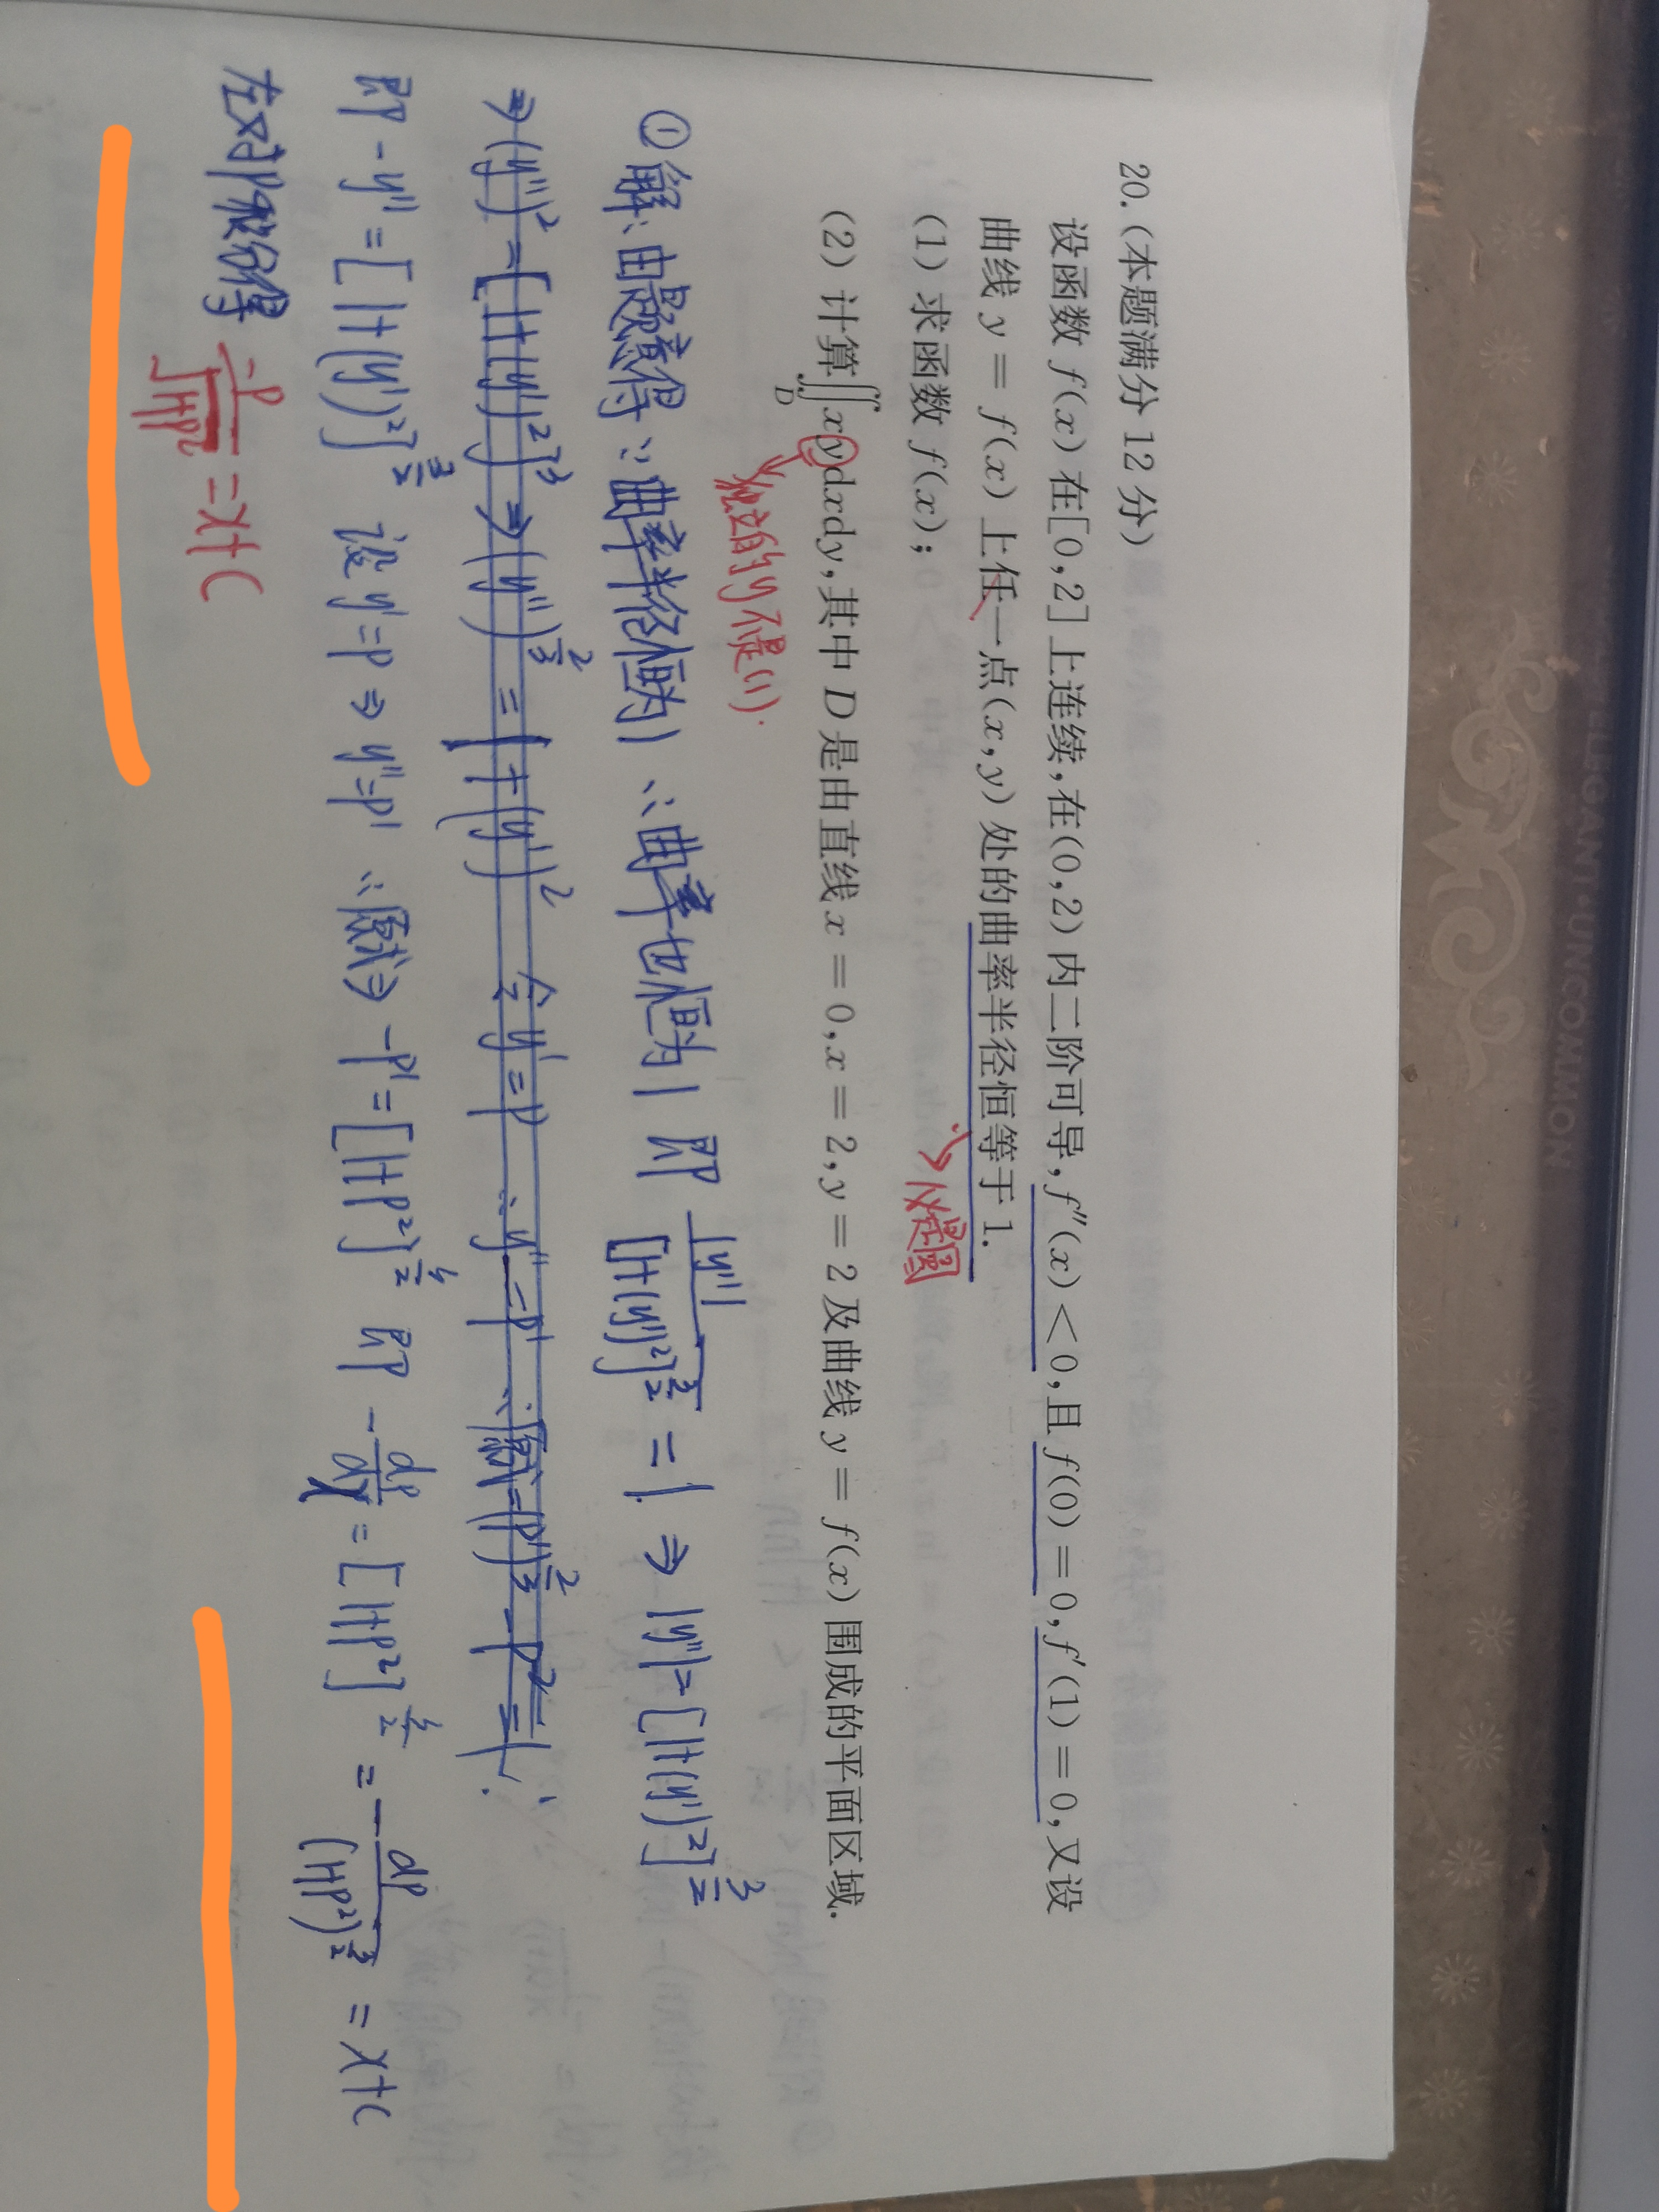 20.(本题满分 12 分)
设函数 f(x) 在[0,2]上连续,在(0,2)内二阶可导,f″(x)<0,且 f(0)=0,f′(1)=0,又设
曲线 y=f(x) 上任一点(x,y) 处的曲率半径恒等于 1.
(1) 求函数 f(x);
→仅是圆
(2) 计算∬_D xydxdy,其中 D 是由直线 x=0,x=2,y=2 及曲线 y=f(x) 围成的平面区域.
→独立的y不是(1).
① 解:由题意得∵曲率半径恒为1 ∴曲率也恒为1 即 |y''|/[1+(y')²]^(3/2) =1. ⇒ |y''|=[1+(y')²]^(3/2)
⇒(y'')²=[1+(y')²]³ ⇒(y'')^(2/3) = 1+(y')² 令 y'=p ∴y''=p' ∴原式=(p')^(2/3)-p²=1.
即 -y''=[1+(y')²]^(3/2) 设 y'=p ⇒ y''=p' ∴原式⇒ -p'=[1+p²]^(3/2) 即 -dp/dx=[1+p²]^(3/2) =-dp/(1+p²)^(3/2) =x+C
在对P积分得 -p/√(1+p²) =x+C
ELEGANT·UNCOMMON